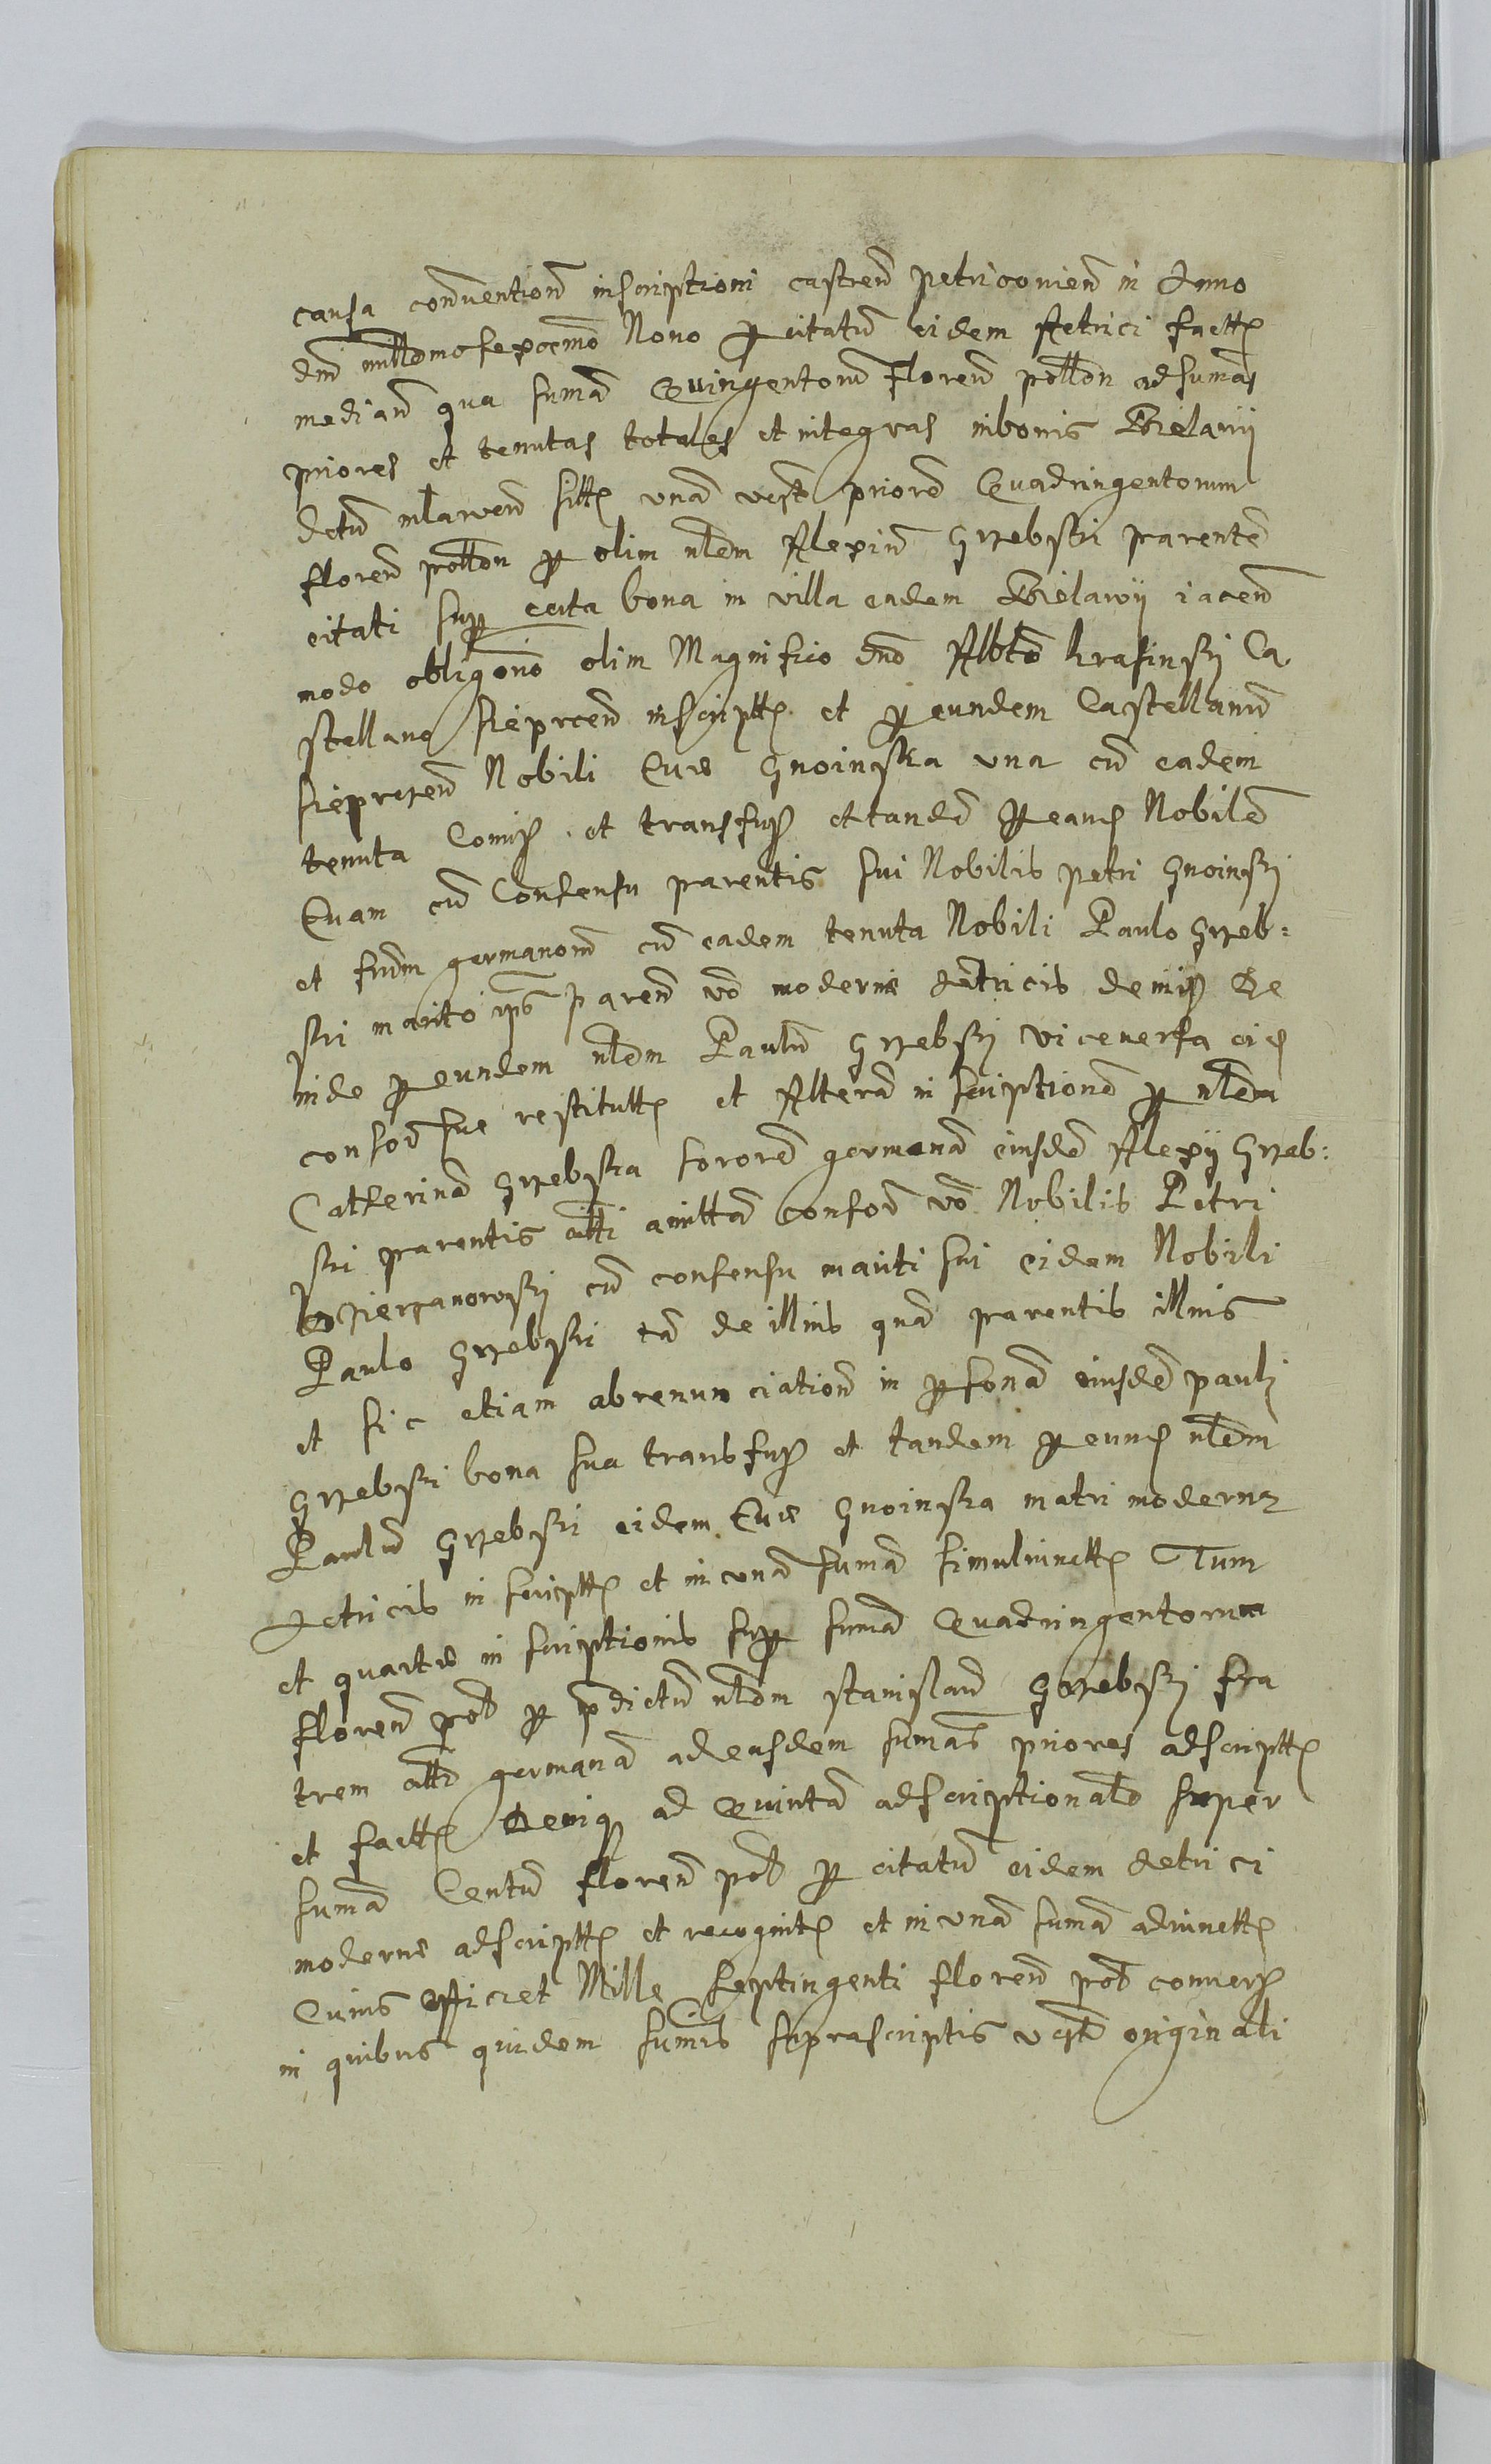 causa conventioñ inscriptioni castreñ petricovieñ in Anno
dni milltmo sexcemo Nono per citatũ eidem Actrici factt
mediañ qua sumã Quingentorũ Floreñ polloñ ad sumas
priores et tenutas totales et integras in bonis Bielawij
dctũ mlaweñ sitt unã vest priorẽ Quadringentorum
floreñ polloñ per olim nlem Alexiũ Grzebski parentẽ
citati super certa bona in villa eadem Bielawij iaceñ
modo obligonõ olim Magnifico dno Albto Krasinsky Ca
stellano Sieprceñ inscriptt et per eundem Castellanũ
Sieprceñ Nobili Evæ Gnoinska una cũ eadem
tenuta Comis et transfus et tandẽ per eand Nobilẽ
Evam cũ Consensu parentis sui Nobilis petri Gnoinsky
et frũm germanorũ cũ eadem tenuta Nobili Paulo Grzeb:
ski marito ipsˢ pareñ vo modernæ Actricis demis De
inde per eundem nlem Paulũ Grzebsky vicenersa eid
consor suæ restitutt et Alterã inscriptionẽ per nlem
Catherinã Grzebska sororẽ germanã eiusdẽ Alexij Grzeb:
ski parentis citti amittã consor vo Nobilis Petri
Wierzanowsky cũ consensu mariti sui eidem Nobili
Paulo Grzebski tã de illius quã parentis illius
et sic etiam abrenunciatioñ in personã eiusdẽ pauli
Grzebski bona sua transfus et tandem per eund nlem
Paulũ Grzebski eidem Evæ Gnoinska matri modernæ
Actricis inscriptt et in unã sumã simul iunctt Tum
et quartæ inscriptionis super sumã Quadringentorum
floreñ pol per pdictũ nlem stanislaũ Grzebsky fra
trem citti germanũ ad easdem sumas priores adscriptt
et factt Deniq ad Quintã adscriptionalẽ super
sumã Centũ floreñ pol per citatũ eidem Actrici
modernæ adscriptt et recognit et in unã sumã adiunctt
Cuius efficiet Mille septingenti floreñ pol convers
in quibus quidem sumis suprascriptis vest originali